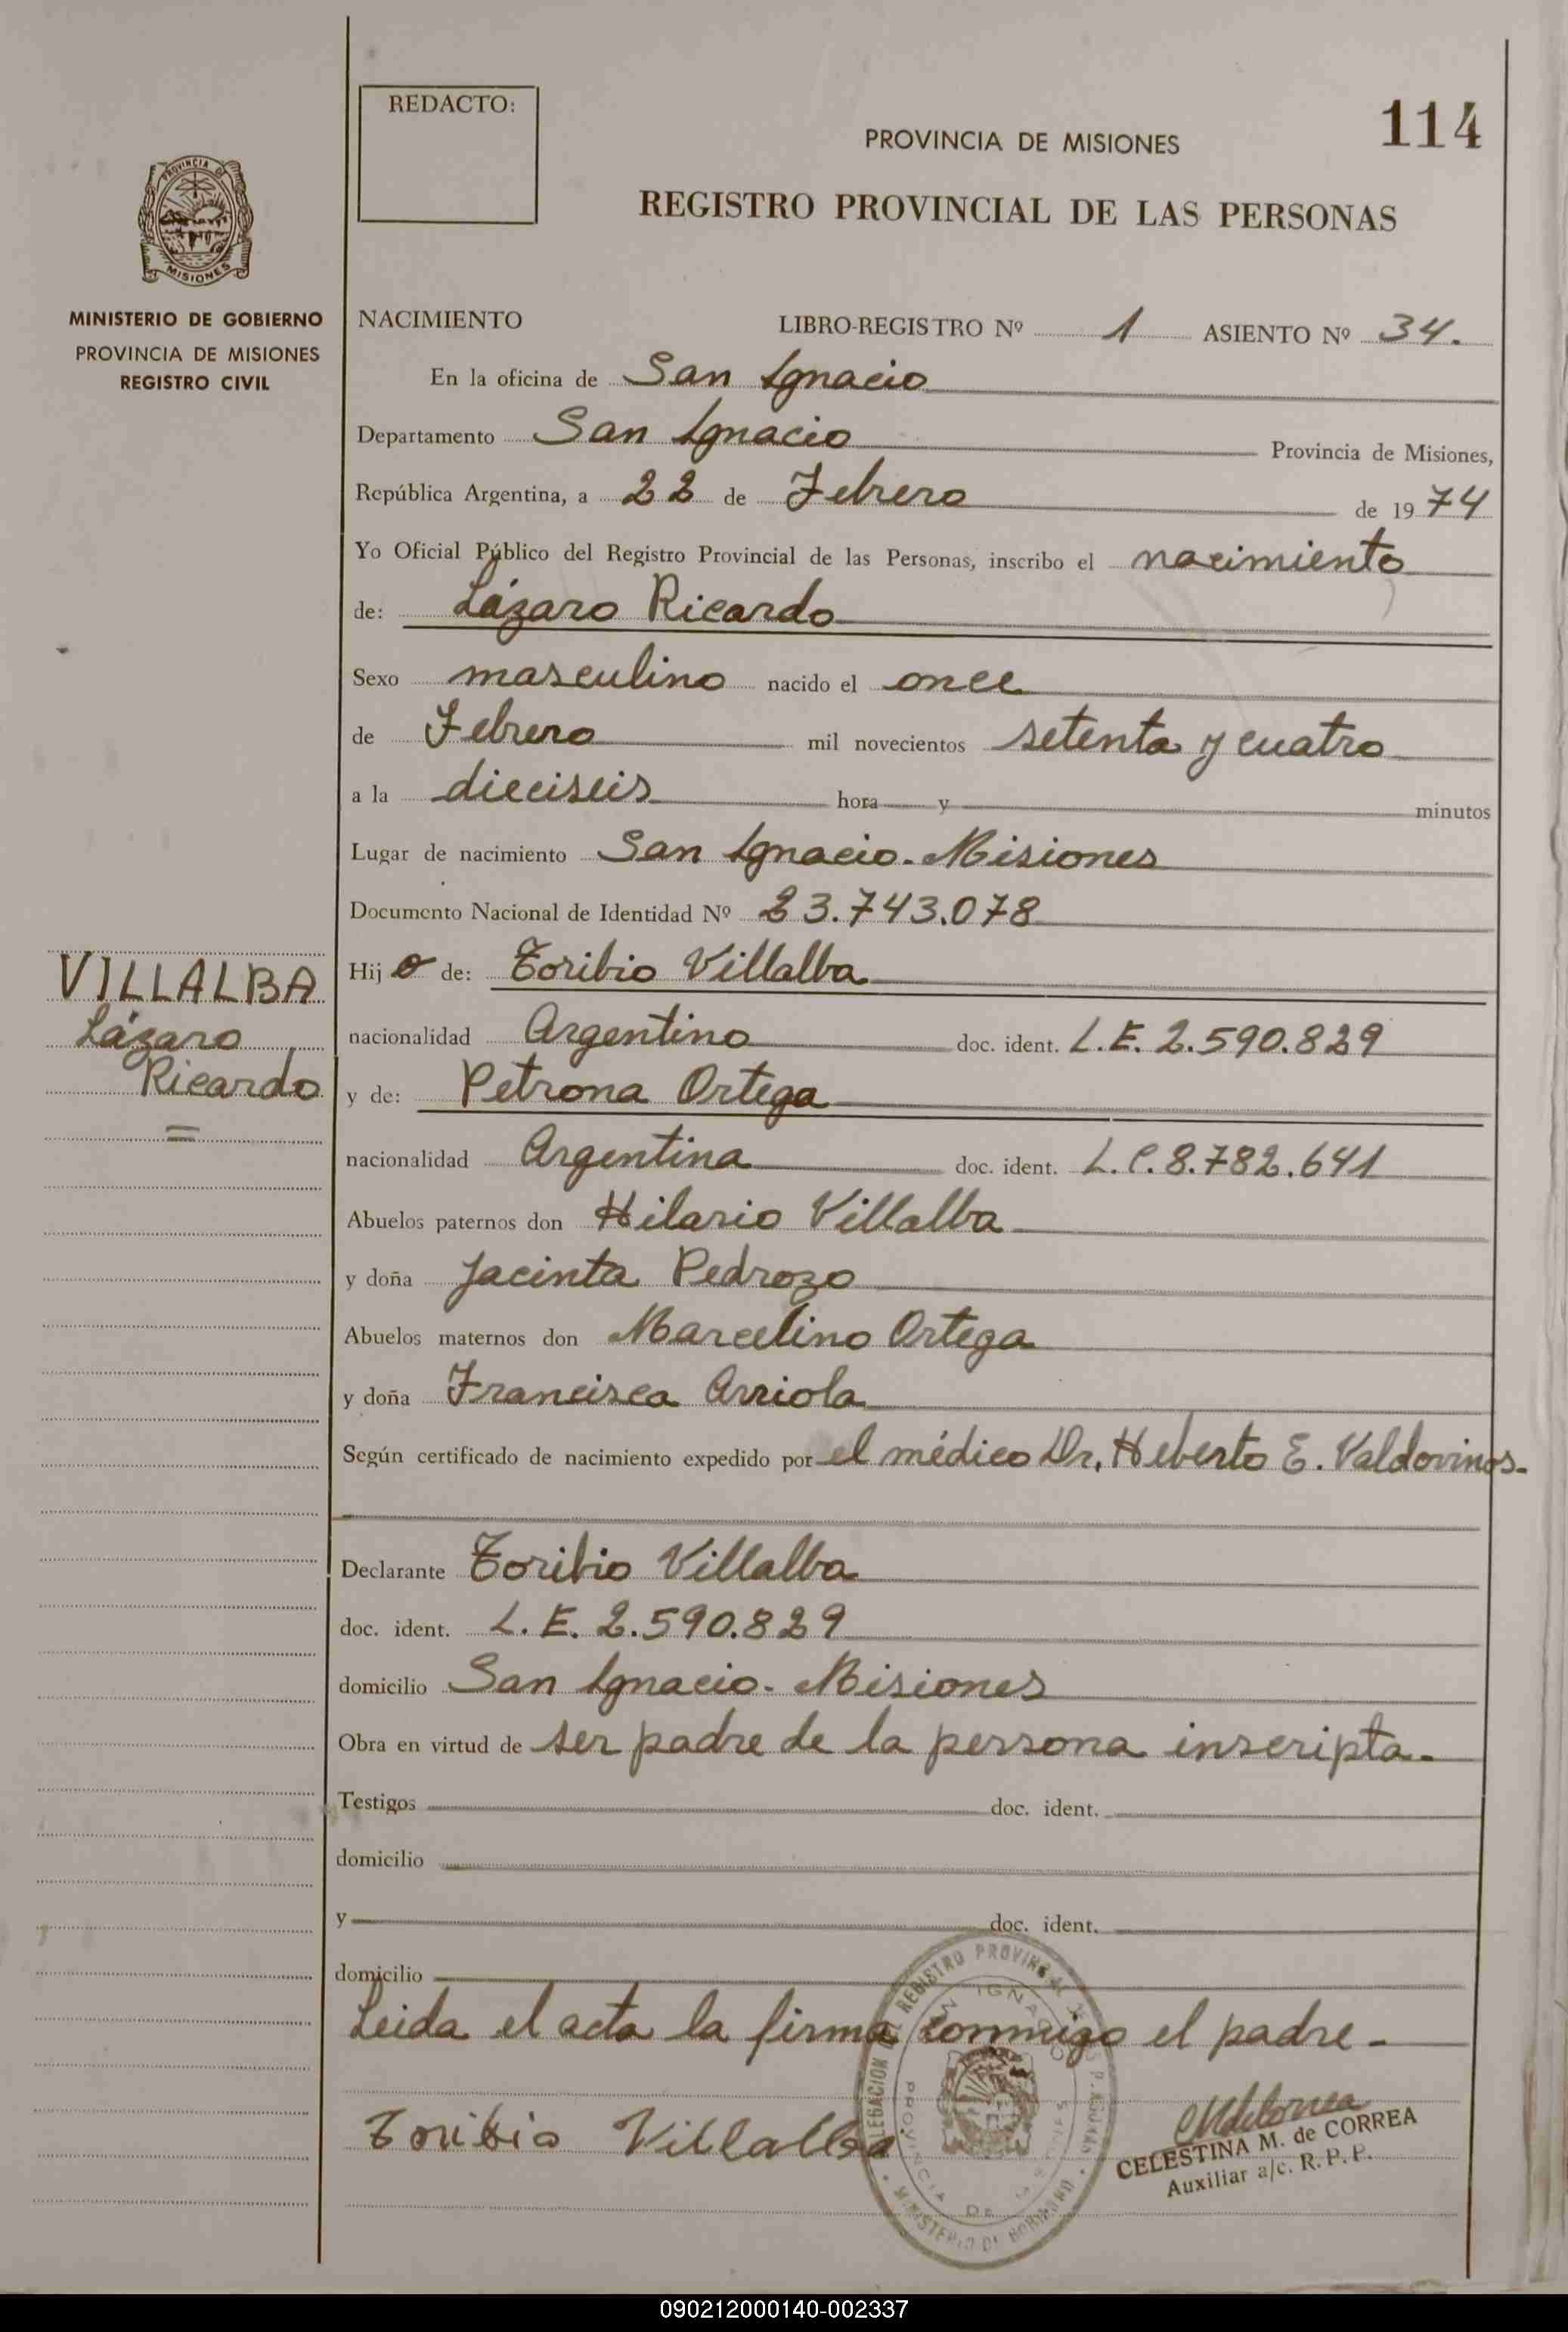 REDACTO:
114
PROVINCIA DE MISIONES
REGISTRO PROVINCIAL DE LAS PERSONAS
PROVINCIA DE
MISIONES
MINISTERIO DE GOBIERNO
PROVINCIA DE MISIONES
REGISTRO CIVIL
NACIMIENTO LIBRO-REGISTRO Nº 1 ASIENTO Nº 34.
En la oficina de San Ignacio
Departamento San Ignacio Provincia de Misiones,
República Argentina, a 22 de Febrero de 1974
Yo Oficial Público del Registro Provincial de las Personas, inscribo el nacimiento
de: Lázaro Ricardo
Sexo masculino nacido el once
de Febrero mil novecientos setenta y cuatro
a la dieciseis hora y minutos
Lugar de nacimiento San Ignacio. Misiones
Documento Nacional de Identidad Nº 23.743.078
VILLALBA
Lázaro
Ricardo
=
Hijo de: Toribio Villalba
nacionalidad Argentino doc. ident. L.E. 2.590.829
y de: Petrona Ortega
nacionalidad Argentina doc. ident. L.C. 8.782.641
Abuelos paternos don Hilario Villalba
y doña Jacinta Pedrozo
Abuelos maternos don Marcelino Ortega
y doña Francisca Arriola
Según certificado de nacimiento expedido por el médico Dr, Heberto E. Valdovinos-
Declarante Toribio Villalba
doc. ident. L.E. 2.590.829
domicilio San Ignacio- Misiones
Obra en virtud de ser padre de la persona inscripta-
Testigos doc. ident.
domicilio
y doc. ident.
domicilio
Leida el acta la firma conmigo el padre-
Toribio Villalba
REGISTRO PROVINCIAL
IGNACIO
PROVINCIA DE
MINISTERIO DE GOBIERNO
CELESTINA M. de CORREA
Auxiliar a/c. R. P. P.
090212000140-002337